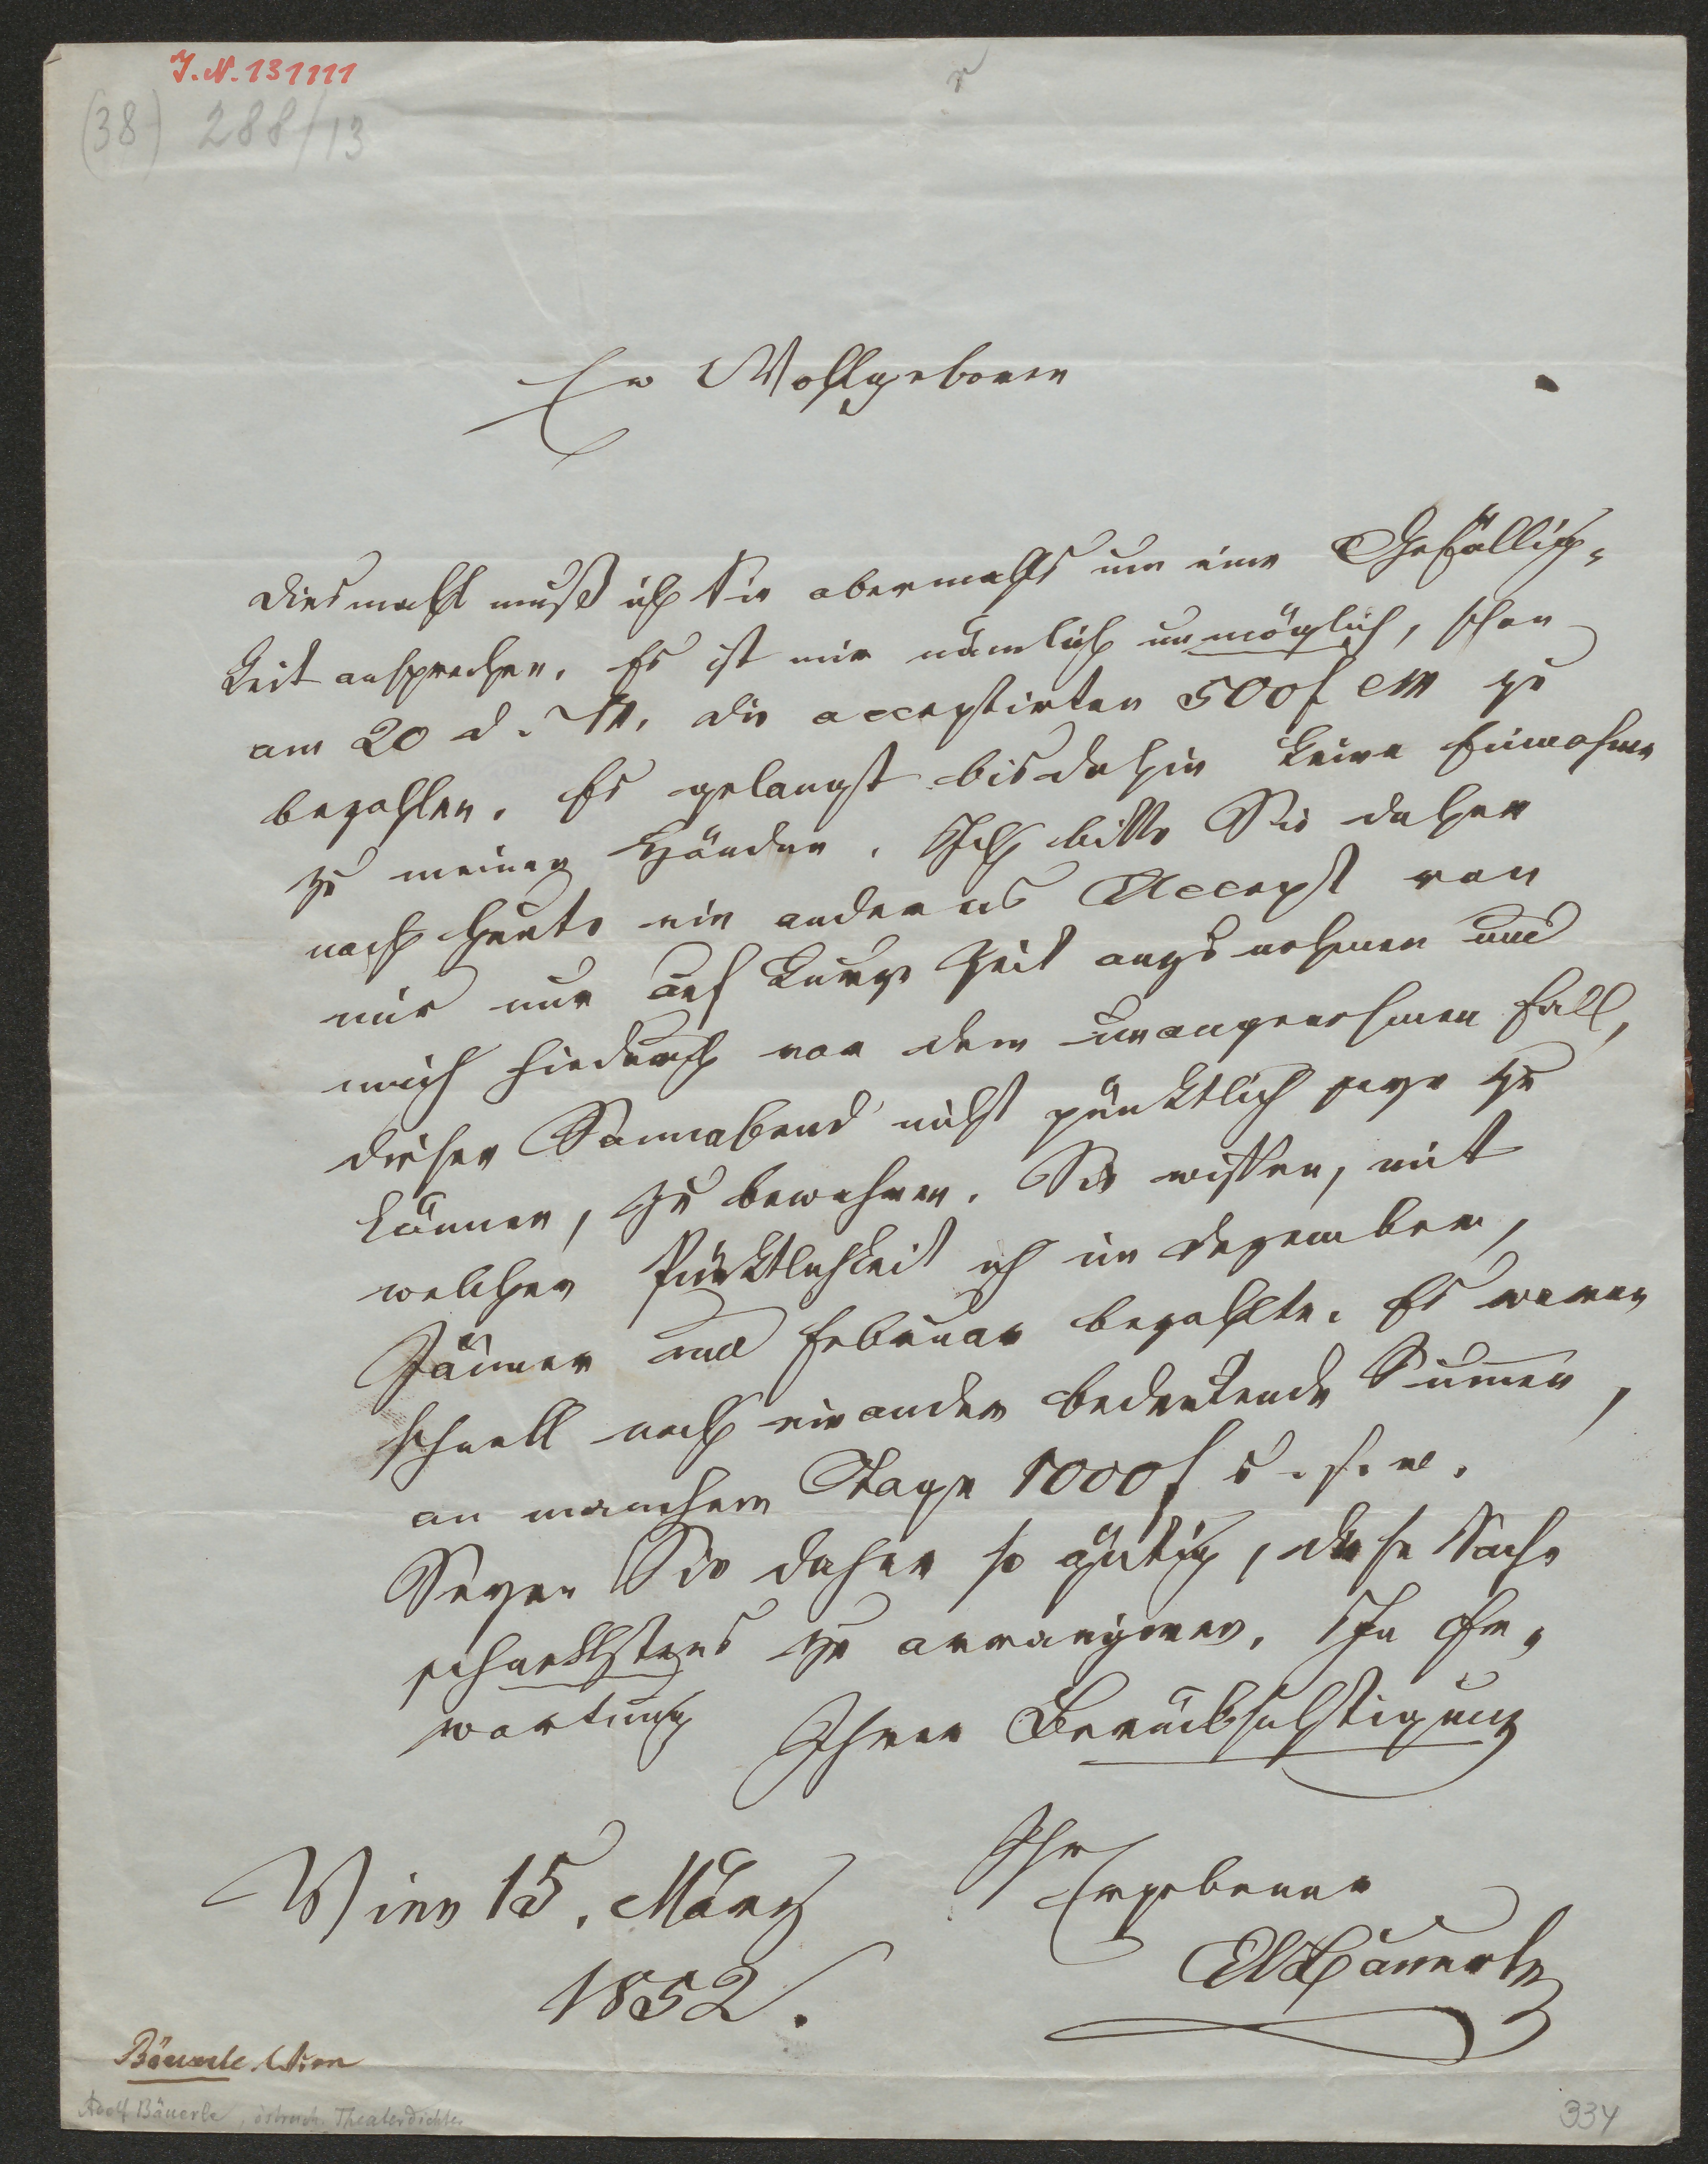 J. N. 131111
(38) 288/13
Ew Wohlgeboren
Diesmahl muß ich Sie abermahls um eine Gefällig-
keit ansprechen. Es ist mir nämlich unmöglich, schon
am 20 d. M. die acceptirten 500 f CM zu
bezahlen. Es gelangt bis dahin keine Einnahme
zu meinen Händen. Ich bitte Sie daher
noch heute ein anderes Accept von
mir nur auf kurze Zeit anzunehmen und
mich hiedurch vor dem unangenehmen Fall,
diesen Sonnabend nicht pünktlich seyn zu
können, zu bewahren. Sie wissen, mit
welcher Pünktlichkeit ich im Dezember,
Jänner und Februar bezahlte. Es waren
schnell nach einander bedeutende Summen,
an manchem Tage 1000 f u. s. w.
Seyen Sie daher so gütig, diese Sache
schnellstens zu arrangiren. In Er-
wartung Ihrer Berücksichtigung
Ihr
Ergebener
Wien 15. März
1852.
ABäuerle
Bäuerle Wien
Adolf Bäuerle, östreich. Theaterdichter
334